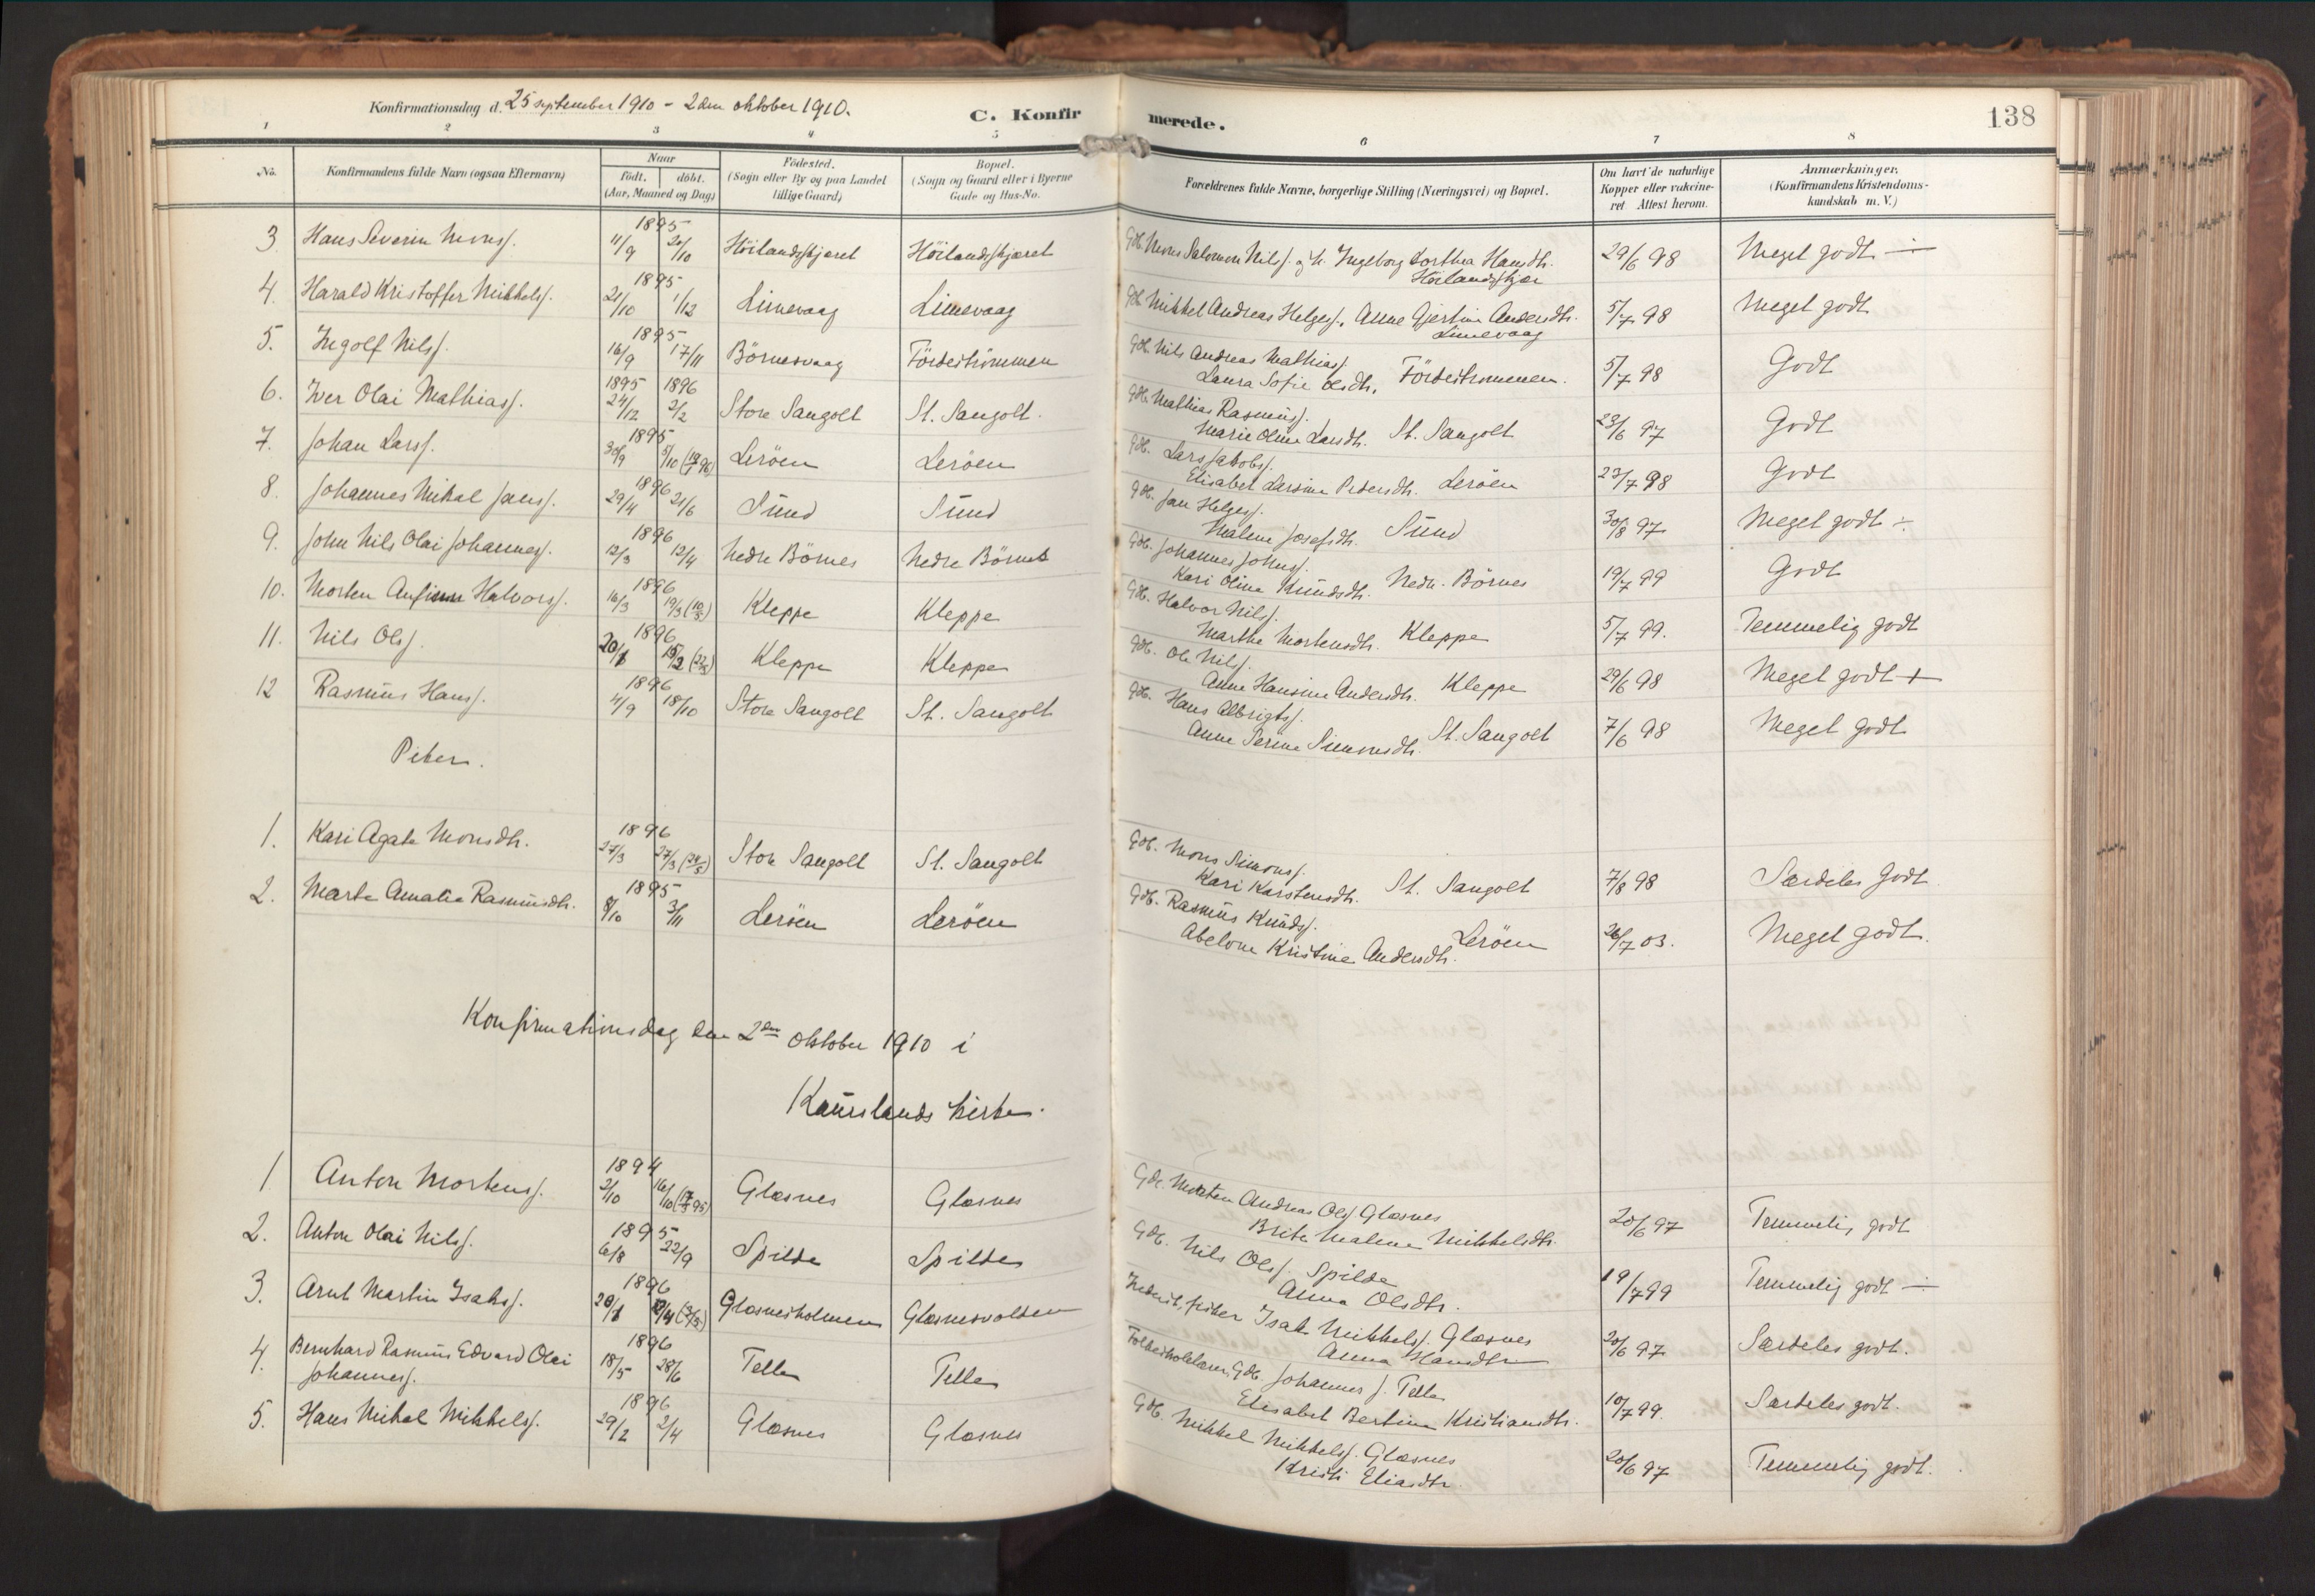 Konfirmationsdag d. 25 september 1910 - 2den oktober 1910.
C. Konfirmerede.
138
1 2 3 4 5 6 7 8
No.
Konfirmandens fulde Navn (ogsaa Efternavn)
Naar
født. døbt.
(Aar, Maaned og Dag)
Födested.
(Sogn eller By og paa Landet tillige Gaard)
Bopæl.
(Sogn og Gaard eller i Byerne Gade og Hus-No.
Forældrenes fulde Navne, borgerlige Stilling (Næringsvei) og Bopæl.
Om havt de naturlige Kopper eller vakcineret Attest herom.
Anmærkninger.
(Konfirmandens Kristendomskundskab m. V.)
3. Hans Severin Monsf. 1895 11/9 20/10 Höilandsskjæret Höilandsskjæret Gdb. Mons Salomon Nilsf. og h. Ingeborg Dorthea Hansdtr. Höilandsskjær 29/6 98 Meget godt ÷
4. Harald Kristoffer Mikkelsf. 1895 21/10 1/12 Limevaag Limevaag Gdb. Mikkel Andreas Helgesf., Anne Gjertine Andersdtr. Limevaag 5/7 98 Meget godt
5. Ingolf Nilsf. 1895 16/9 17/11 Börnesvaag Fördeströmmen Gdb. Nils Andreas Mathiasf. Laura Sofie Olsdtr. Fördestrommen. 5/7 98 Godt
6. Iver Olai Mathiasf. 1895 24/12 1896 2/2 Store Sangolt St. Sangolt. Gdb. Mathias Rasmusf. Marie Oline Larsdtr. St. Sangolt 23/6 97 Godt
7. Johan Larsf. 1895 30/9 5/10 Leröen Leröen Gdb. Lars Jakobsf. Elisabet Larsine Pedersdtr. Leröen 23/7 98 Godt
8. Johannes Mikal Jansf. 1896 29/4 21/6 Sund Sund Gdb. Jan Helgesf. Malene Josefsdtr. Sund 30/8 97 Meget godt ÷
9. John Nils Olai Johannesf. 1896 12/3 12/4 Nedre Börnes Nedre Börnes Gdb. Johannes Johnsf. Kari Olina Knudsdtr. Nedr. Börnes 19/7 99 Godt
10. Morten Anfinn Halvorsf. 1896 16/3 19/3 (10/5) Kleppe Kleppe Gdb. Halvor Nilsf. Marthe Mortensdtr. Kleppe 5/7 99. Temmelig godt
11. Nils Olsf. 1896 20/1 15/2 Kleppe Kleppe Gdb. Ole Nilsf. Anne Hansine Andersdtr. Kleppe 29/6 98 Meget godt +
12 Rasmus Hansf. 1896 11/9 18/10 Store Sangolt St. Sangolt Gdb. Hans Albrigtsf. Anne Serine Simonsdtr. St. Sangolt 7/6 98 Meget godt
Piker.
1. Kari Agate Monsdtr. 1896 27/3 27/3 (24/5) Store Sangolt St. Sangolt Gdb. Mons Simonsf. Kari Karstensdtr. St. Sangolt 7/8 98 Særdeles Godt
2. Marte Amalie Rasmusdtr. 1895 8/10 3/11 Leröen Leröen Gdb. Rasmus Knudsf. Abelone Kristine Andersdtr. Leröen 26/7 03. Meget godt.
Konfirmationsdag den 2den oktober 1910 i
Kauslands kirke.
1 Anton Mortensf. 1894 2/10 16/10 Glæsnes Glæsnes Gdr. Morten Andreas Olsf. Glæsnes Brite Malene Mikkelsdtr. 20/6 97 Temmelig godt
2. Anton Olai Nilsf. 1895 6/8 22/9 Spilde Spilde Gdb. Nils Olsf. Spilde Anna Olsdtr. 19/7 99 Temmelig godt ÷
3. Arnt Martin Isaksf. 1896 20/1 Glæsnesholmen Glæsnesvolden fisker Isak Mikkelsf. Glæsnes Anna Hansdtr 20/6 97 Særdeles godt.
4. Bernhard Rasmus Edvard Olai Johannesf. 1896 18/5 28/6 Telle Telle Gdb. Johannes J. Telle Elisabet Bertine Kristiansdtr. 10/7 99 Særdeles godt.
5. Hans Mikal Mikkelsf. 1896 29/2 2/4 Glæsnes Glæsnes Gdb. Mikkel Mikkelsf. Glæsnes Kristi Eliasdtr. 20/6 97 Temmelig godt.